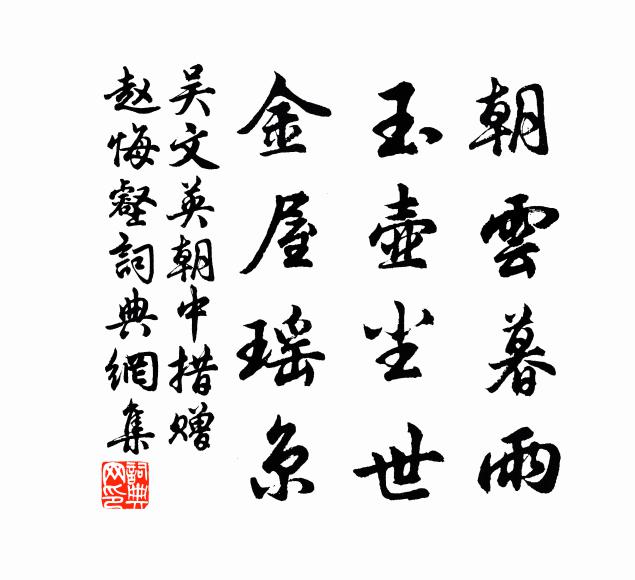 朝雲暮雨
玉壺尘世
金屋瑶京
吴文英朝中措赠
赵悔壑詞典網集
詞典
网印